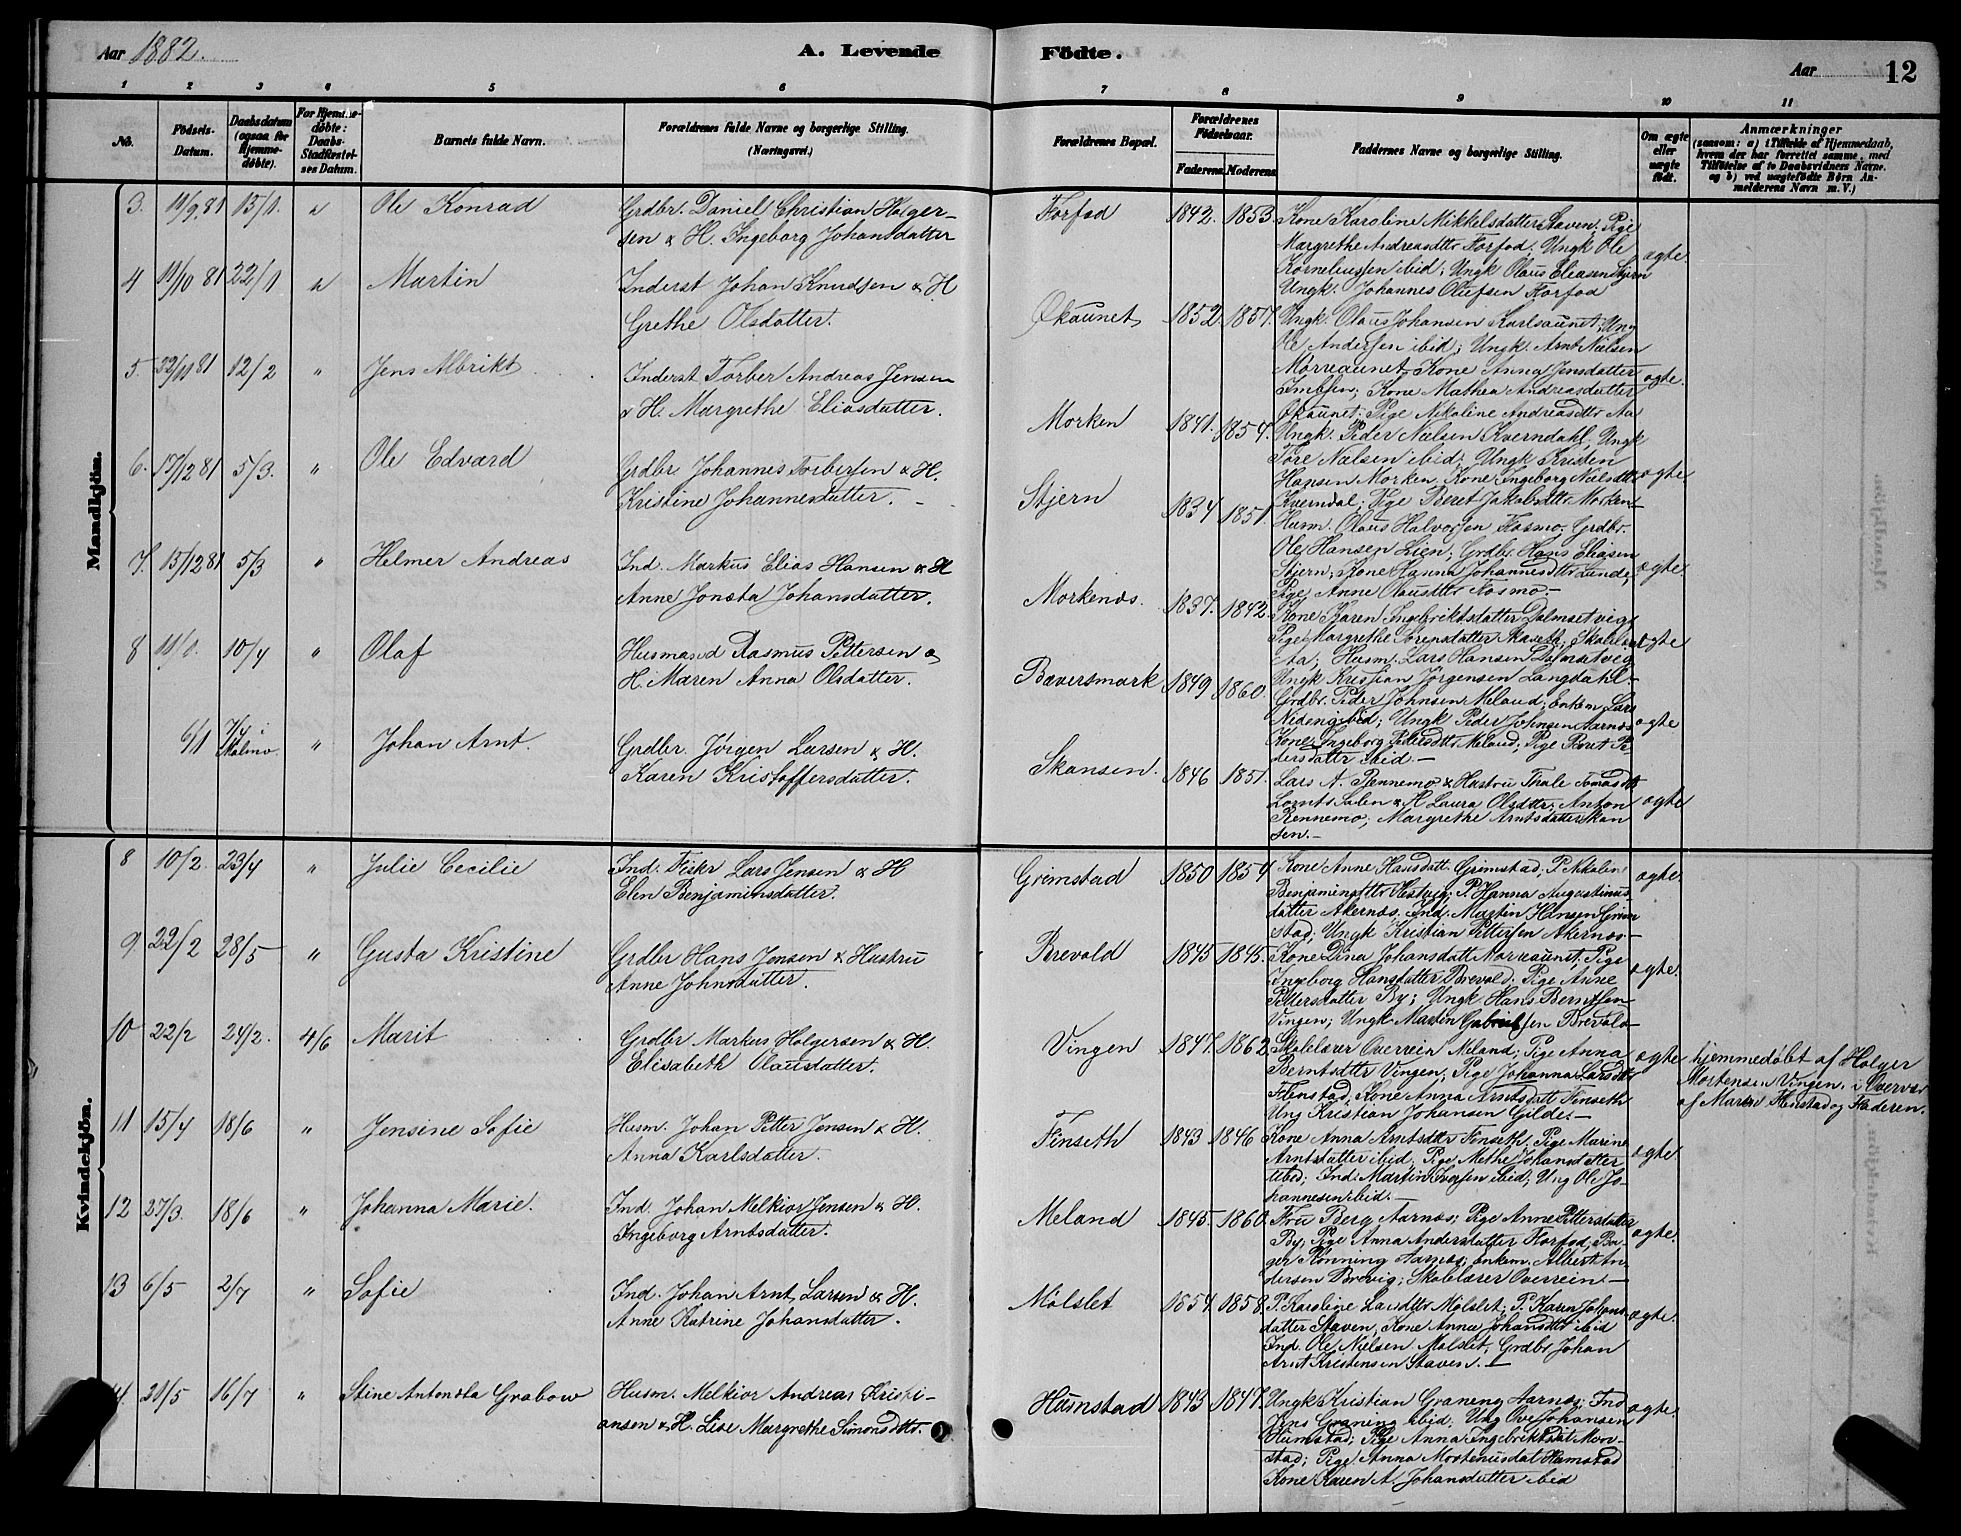 Aar 1882.
A. Levende
Födte.
Aar
12
1 2 3 4 5 6 7 8 9 10 11
No.
Födsels-Datum.
Daabsdatum (ogsaa for Hjemmedöbte).
For Hjemmedøbte: Daabs-Stadfæstelses Datum.
Barnets fulde Navn.
Forældrenes fulde Navne og borgerlige Stilling. (Næringsvei.)
Forældrenes Bopæl.
Forældrenes Födselsaar.
Faderens. Moderens.
Faddernes Navne og borgerlige Stilling.
Om ægte eller uægte födt.
Anmærkninger
(saasom: a) i Tilfælde af Hjemmedaab, hvem der har forrettet samme, med Tilföielse af to Daabsvidners Navne. og b) ved uægtefödte Børn Anmelderens Navn m. V.)
Mandkjön.
3. 11/9 81 15/1. " Ole Konrad
Grdbr. Daniel Christian Holger-
sen & H. Ingeborg Johansdatter
Forfod 1842. 1853.
Kone Karoline Mikkelsdatter Staven; Pige
Margrethe Andreasdtr Forfod; Ungk Ole
Korneliussen ibid; Ungk Olaus Eliasen Stjern
Ungk. Johannes Olufsen Forfod
ægte.
4 11/10 81 22/1 " Martin
Inderst Johan Knudsen & H
Grethe Olsdatter.
Økaunet 1852. 1857.
Ungk. Olaus Johansen Karlsaunet; Ung
Ole Andersen ibid; Ungk. Arnt Nielsen
Morreaunet, Kone Anna Jensdatter
Imbsen, Kone Mathea Andreasdatter
Økaunet; Pige Nikoline Andreasdtr Aa
ægte.
5. 22/11 81 12/2 " Jens Albrikt
Inderst Torber Andreas Jensen
& H. Margrethe Eliasdatter.
Morken 1841. 1854.
Ungk. Peder Nielsen Kverndahl, Ungk
Tore Nielsen ibid; Ungk Kristen
Hansen Morken, Kone Ingeborg Nielsdtr
Kverndal; Pige Beret Jakobsdtr Morken-
ægte.
6. 17/12 81 5/3. " Ole Edvard
Grdbr Johannes Torbersen & H.
Kristine Johannesdatter.
Stjern 1834 1851
Husm. Olaus Halvorsen Fosmo. Grdbr.
Ole Hansen Lien; Grdbr Hans Eliasen
Stjern, Kone Hanna Johannesdtr Lunde,
Pige Anne Olausdtr Fosmo.-
ægte.
7. 15/12 81 5/3 " Helmer Andreas
Ind. Markus Elias Hansen & H
Anne Jonsta Johansdatter.
Morkenæs. 1837. 1842.
Kone Karen Ingebriktsdatter Dalmsetvig
Pige Margrethe
Aa; Husm. Lars Hansen
Ungk Kristian Jörgensen Langdahl.-
ægte
8 11/1. 10/4 " Olaf
Husmand Rasmus Pettersen &
H. Maren Anna Olsdatter.
Bæversmark 1849 1860.
Grdbr. Peder Johnsen Meland; Enkem. Lars
ibid; Ungk Peder Johnsen Aarnæs
Kone Ingeborg Pedersdtr Meland; Pige Beret Pe-
dersdatter ibid.-
ægte
6/1 Skalmo. " Johan Arnt.
Grdbr. Jörgen Larsen & H.
Karen Kristoffersdatter.
Skansen. 1846 1851.
Lars A. Rennemo & Hustru Thale Tomasdtr
Lornts Solen & H Laura Olsdtr; Anton
Rennemo; Margrethe Arntsdatter Skan
sen.-
ægte
Kvindekjön.
8 10/2. 23/4 " Julie Cecilie
Ind. Fisker Lars Jensen & H
Elen Benjaminsdatter.
Grimstad 1850 1854
Kone Anne Hansdatt. Grimstad; P. Nikoline
Benjaminsdtr; P. Hanna Augustinus-
datter Akernæs. Ind. Martin Hansen Grim
stad; Ungk Kristian Pettersen Akernæs-
ægte.
9. 22/2 28/5 " Gusta Kristine
Grdbr Hans Jensen & Hustru
Anne Johnsdatter.
Brevold 1845 1845.
Kone Dina Johansdatt Morreaunet; Pige
Ingeborg Hansdatter Brevold, Pige Anne
Pettersdatter By; Ungk Hans Berntsen
Vingen; Ungk Martin Gabrielsen Brevold-
ægte.
10 22/2 24/2. 4/6 Marit
Grdbr Markus Holgersen & H.
Elisabeth Olausdatter.
Vingen 1847. 1862.
Skolelærer Overrein Meland; Pige Anna
Berntsdtr Vingen; Pige Johanna Larsdtr
Flenstad, Kone Anna Arntsdatt Finseth
Ung Kristian Johansen Gilde.-
ægte
hjemmedøbt af Holger
Mortensen Vingen, i Overvær
af Maren Flenstad og Faderen.
11 15/4 18/6 " Jensine Sofie
Husm. Johan Petter Jensen & H.
Anna Karlsdatter.
Finseth 1843 1846
Kone Anna Arntsdtr Finseth, Pige Marine
Arntsdatter ibid, Pige Methe Johansdatter
ibid; Ind. Martin Iversen ibid; Ung Ole Jo-
hannesen ibid.-
ægte
12 27/3. 18/6 " Johanna Marie.
Ind. Johan Melkior Jensen & H.
Ingeborg Arntsdatter.
Meland 1845. 1860.
Fru Berg Aarnæs; Pige Anne Pettersdatter
By; Pige Anna Andersdatter Forfod, Ba-
ger Rönning Aarnæs; Enkem. Albert An-
dersen Brevig; Skolelærer Overrein.-
ægte.
13 6/5 2/7 " Sofie
Ind. Johan Arnt Larsen & H.
Anne Katrine Johansdatter.
Mölslet 1854. 1858.
P. Karoline Larsdtr Mölslet; P. Karen Johans-
datter Staven, Kone Anne Johansdtr ibid
Ind. Ole Nielsen Molslet, Grdbr Johan
Arnt Kristensen Staven.-
ægte.
14. 21/5 16/7 " Stine Antonsta Grabow
Husm. Melkior Andreas Kristi-
ansen & H. Lise Margrethe Simonsdtr.
Humstad 1843 1847.
Ungk Kristian Graneng Aarnæs; Ind
Jens Graneng ibid. Ung Ove Johansen
Humstad; Pige Anna Ingebriktsdat Morr-
stad; Pige Anna Mortensdat Humstad
Kone Karen A. Johansdatter ibid
ægte.